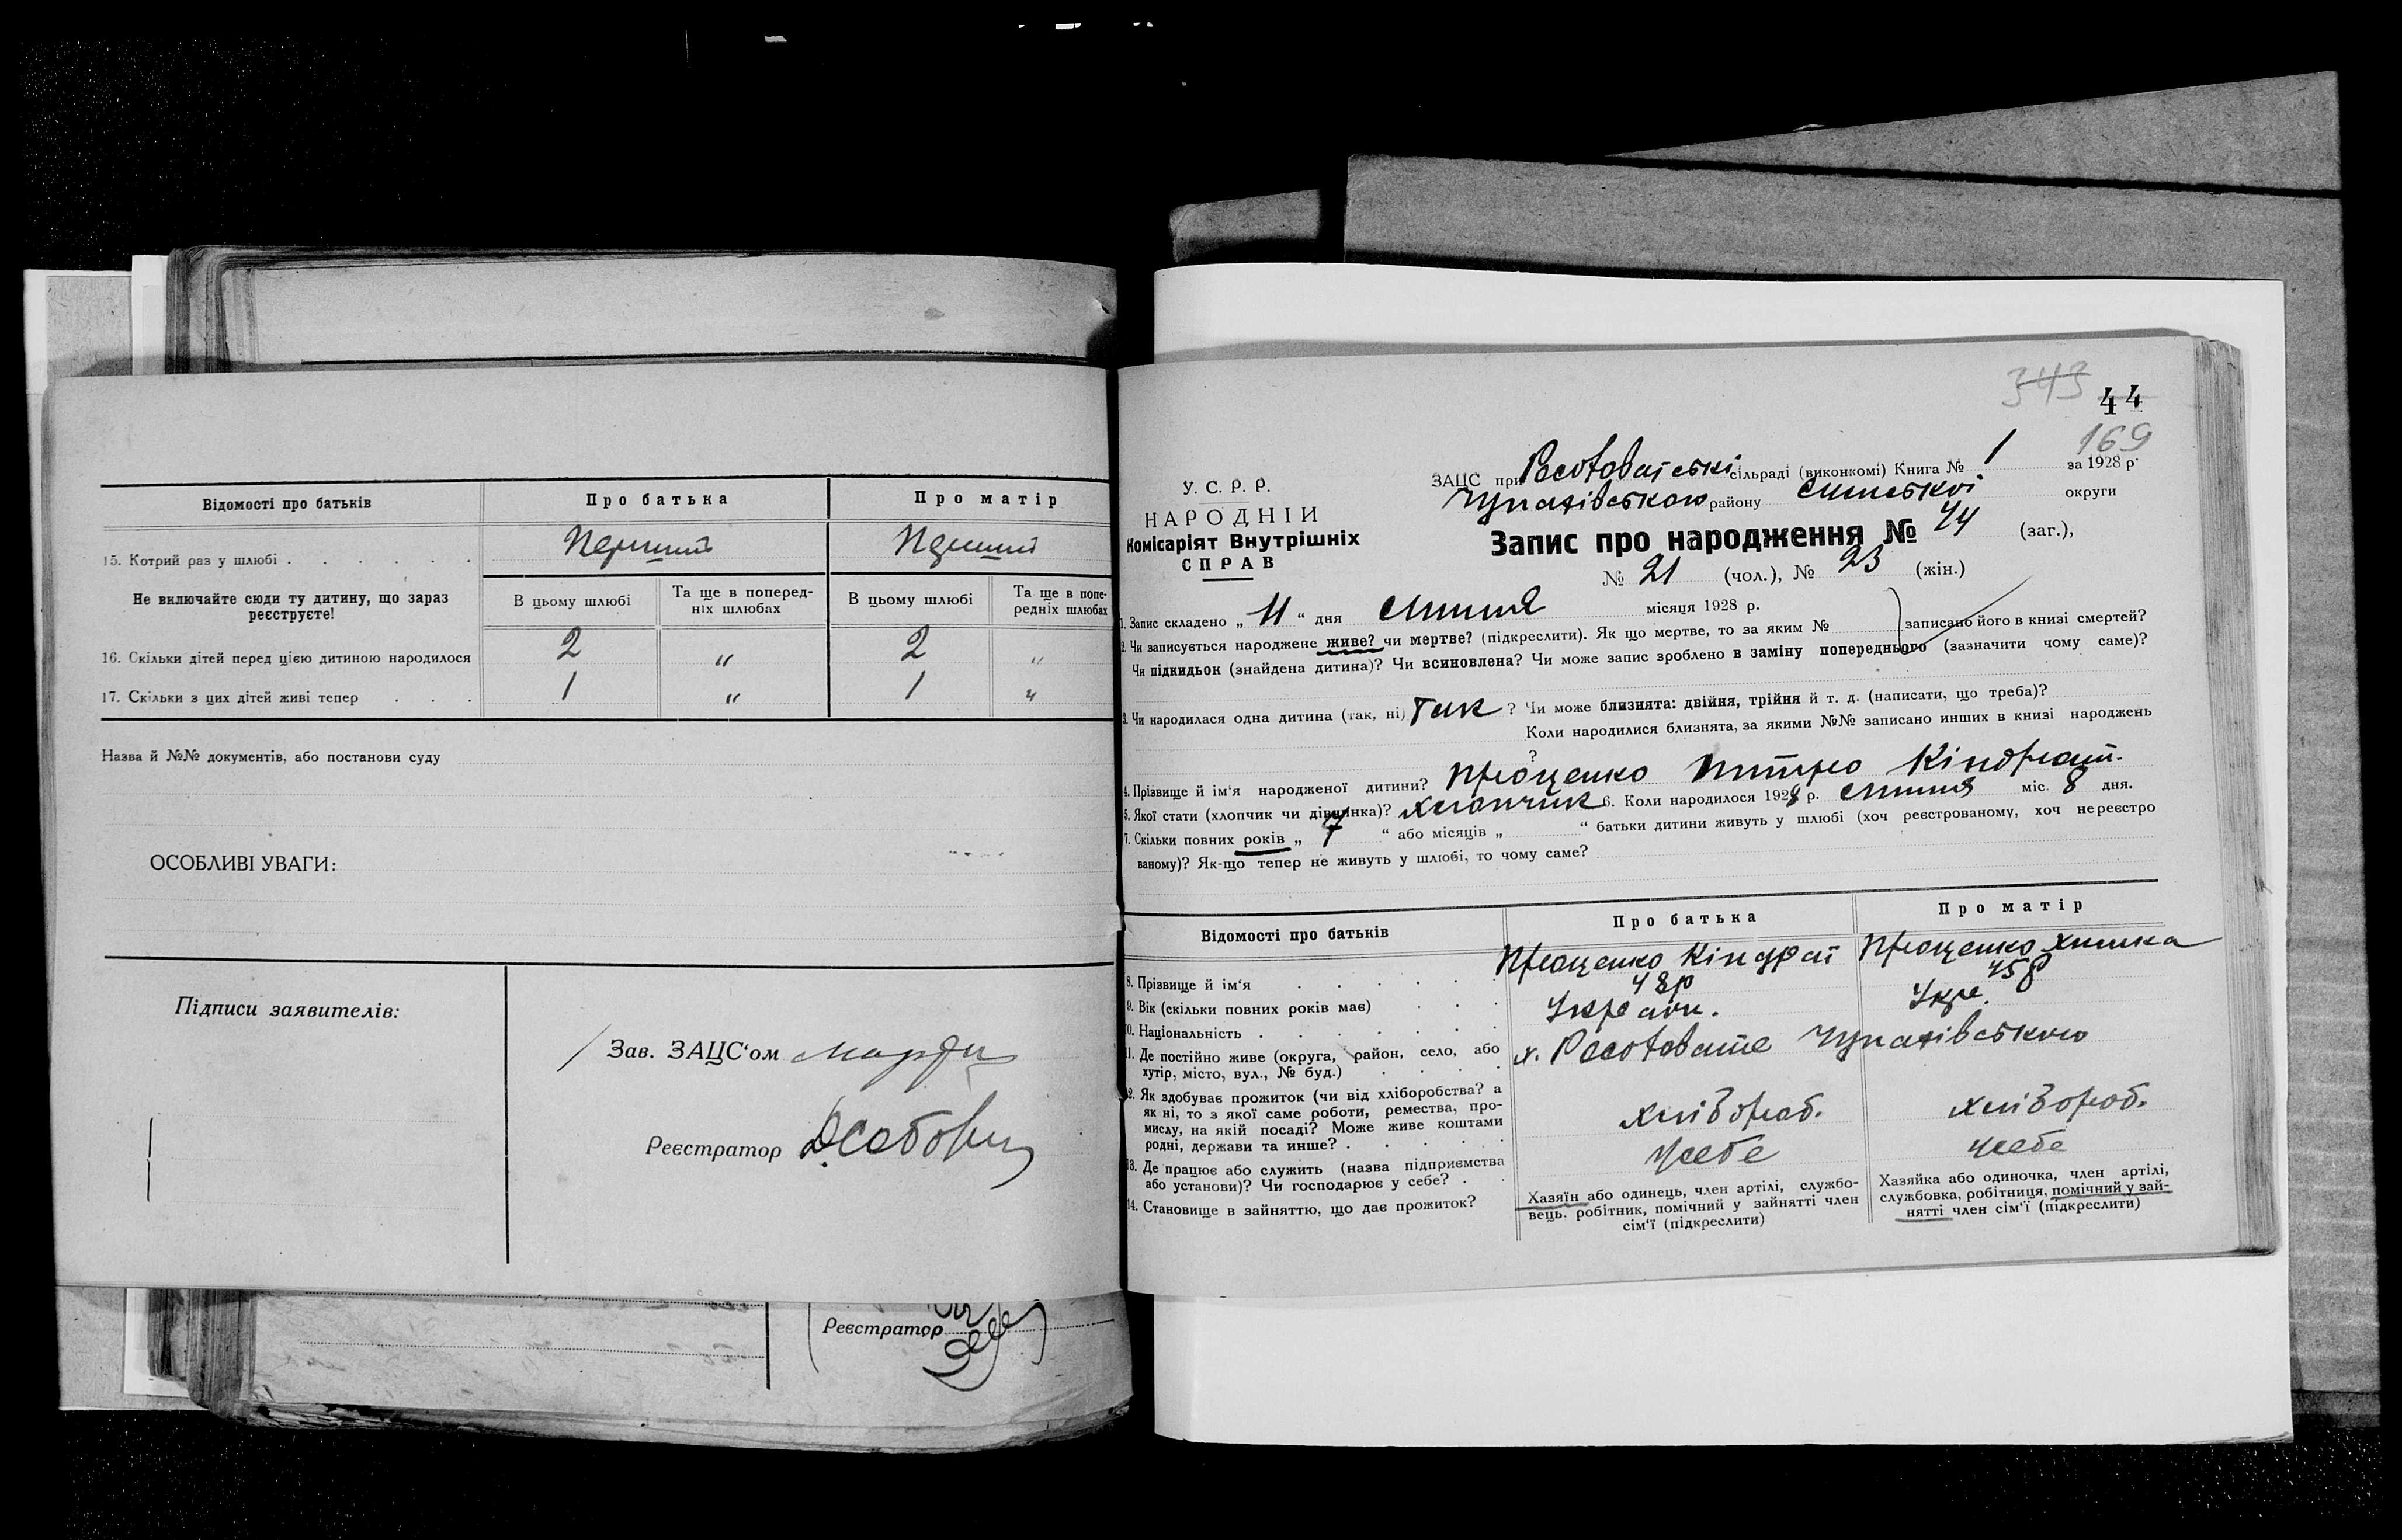 Відомості про батьків
Про батька
Про матір
15. Котрий раз у шлюбі . . . . . .
Перший
Перший
Не включайте сюди ту дитину, що зараз реєструєте!
В цьому шлюбі
Та ще в попередніх шлюбах
В цьому шлюбі
Та ще в попередніх шлюбах
16. Скільки дітей перед цією дитиною народилося
2
"
2
"
17. Скільки з цих дітей живі тепер . . .
1
"
1
"
Назва й №№ документів, або постанови суду
ОСОБЛИВІ УВАГИ:
Підписи заявителів:
Зав. ЗАЦС'ом
Реєстратор
Реєстратор
343
44
169
У. С. Р. Р.
НАРОДНІЙ
Комісаріят Внутрішніх
СПРАВ
ЗАЦС при сільраді (виконкомі) Книга № 1 за 1928 р.
району Сумської округи
Запис про народження № 44 (заг.),
№ 21 (чол.), № 23 (жін.)
1. Запис складено „ 11 " дня Липня місяця 1928 р.
2. Чи записується народжене живе? чи мертве? (підкреслити). Як що мертве, то за яким № записано його в книзі смертей?
Чи підкидьок (знайдена дитина)? Чи всиновлена? Чи може запис зроблено в заміну попереднього (зазначити чому саме)?
3. Чи народилася одна дитина (так, ні) Так ? Чи може близнята: двійня, трійня й т. д. (написати, що треба)?
Коли народилися близнята, за якими №№ записано инших в книзі народжень
?
4. Прізвище й ім'я народженої дитини? Проценко Кіндрат.
5. Якої стати (хлопчик чи дівчинка)? Хлопчик 6. Коли народилося 1928 р. Липня міс. 8 дня.
7. Скільки повних років „ 7 " або місяців „ " батьки дитини живуть у шлюбі (хоч реєстрованому, хоч нереєстро
ваному)? Як-що тепер не живуть у шлюбі, то чому саме?
Відомості про батьків
Про батька
Про матір
8. Прізвище й ім'я . . . . . .
Проценко Кіндрат
Проценко
9. Вік (скільки повних років має) . . .
48р
45р
10. Національність . . . . . . .
Україн.
Укр.
11. Де постійно живе (округа, район, село, або
хутір, місто, вул., № буд.) . . . .
12. Як здобуває прожиток (чи від хліборобства? а
як ні, то з якої саме роботи, ремества, про-
мислу, на якій посаді? Може живе коштами
родні, держави та инше? . . . . .
хлібороб.
хлібороб.
13. Де працює або служить (назва підприємства
або установи)? Чи господарює у себе? . .
Усебе
Усебе
14. Становище в зайняттю, що дає прожиток?
Хазяїн або одинець, член артілі, службо-
вець. робітник, помічний у зайнятті член
сім'ї (підкреслити)
Хазяйка або одиночка, член артілі,
службовка, робітниця, помічний у зай-
нятті член сім'ї (підкреслити)